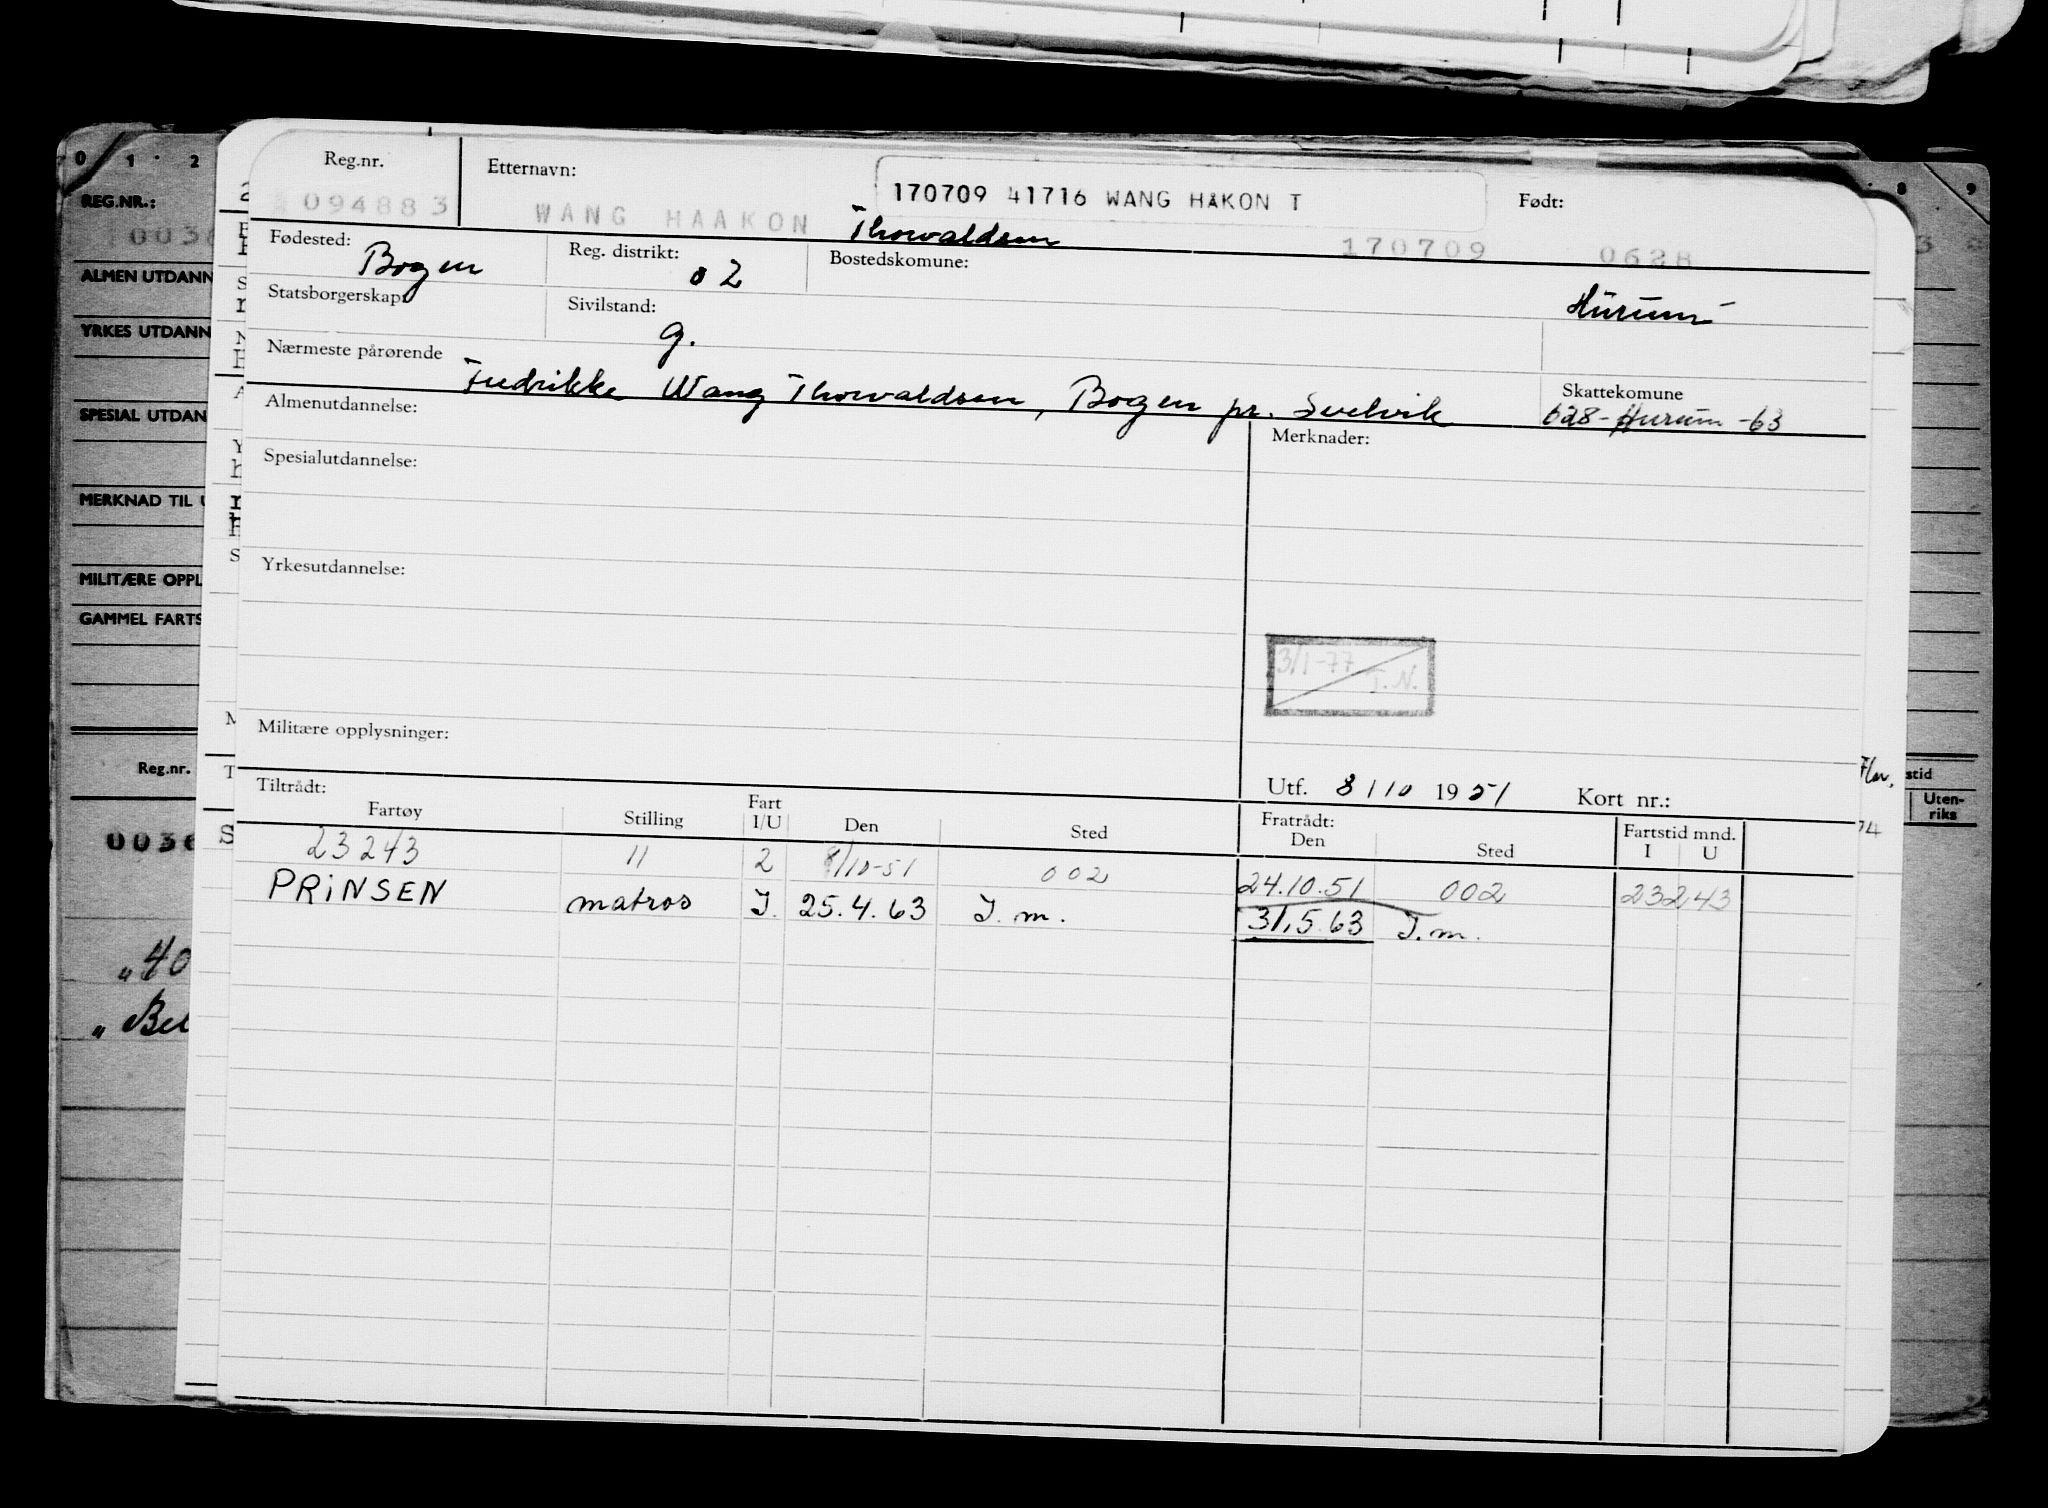 0 1 2
8 9
REG.NR.:
ALMEN UTDANN
YRKES UTDANN
SPESIAL UTDAN
MERKNAD TIL
MILITÆRE OPPL
GAMMEL FARTS
Reg.nr.
0036
"40
"Bel
stid
Uten-
riks
Reg.nr.
094883
Etternavn:
WANG HAAKON Thorvaldsen
170709 41716 WANG HÅKON T
Født:
170709 0628
Fødested: Bogen
Reg. distrikt: 02
Bostedskomune: Hurum
Statsborgerskap:
Sivilstand: g.
Nærmeste pårørende Fredrikke Wang Thorvaldsen, Bogen pr. Svelvik
Skattekomune
628-Hurum-63
Almenutdannelse:
Merknader:
Spesialutdannelse:
Yrkesutdannelse:
3/1-77 T.N.
Militære opplysninger:
Utf. 8/10 1951 Kort nr.:
Tiltrådt: Fratrådt:
Fartøy Stilling Fart I/U Den Sted Den Sted Fartstid mnd. I U
23243 11 2 8/10-51 002 24.10.51 002 23243
PRINSEN matros I. 25.4.63 I.m. 31.5.63 I.m.